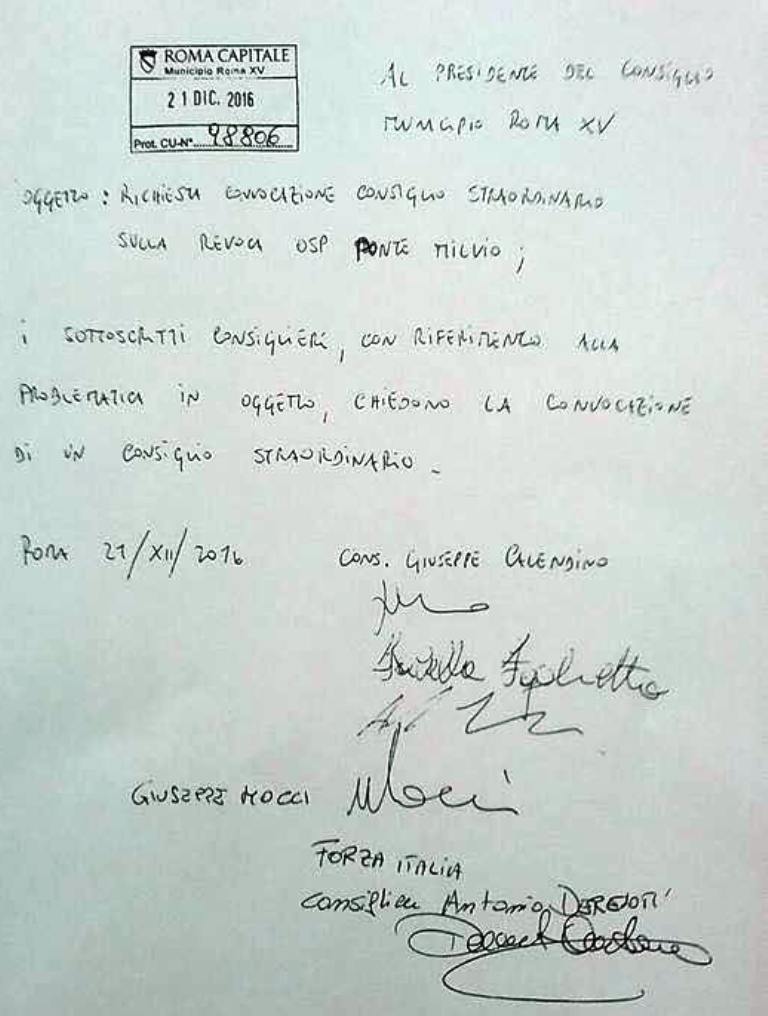 ROMA CAPITALE
Municipio Roma XV
21 DIC. 2016
Prot. CU-N° 98806
AL PRESIDENTE DEL CONSIGLIO
MUNICIPIO ROMA XV
OGGETTO: RICHIESTA CONVOCAZIONE CONSIGLIO STRAORDINARIO
SULLA REVOCA OSP PONTE MILVIO;
i SOTTOSCRITTI CONSIGLIERI, CON RIFERIMENTO ALLA
PROBLEMATICA IN OGGETTO, CHIEDONO LA CONVOCAZIONE
DI UN CONSIGLIO STRAORDINARIO -
ROMA 21/XII/2016
CONS. GIUSEPPE CALENDINO
GIUSEPPE MOCCI Mocci
FORZA ITALIA
Consigliere Antonio